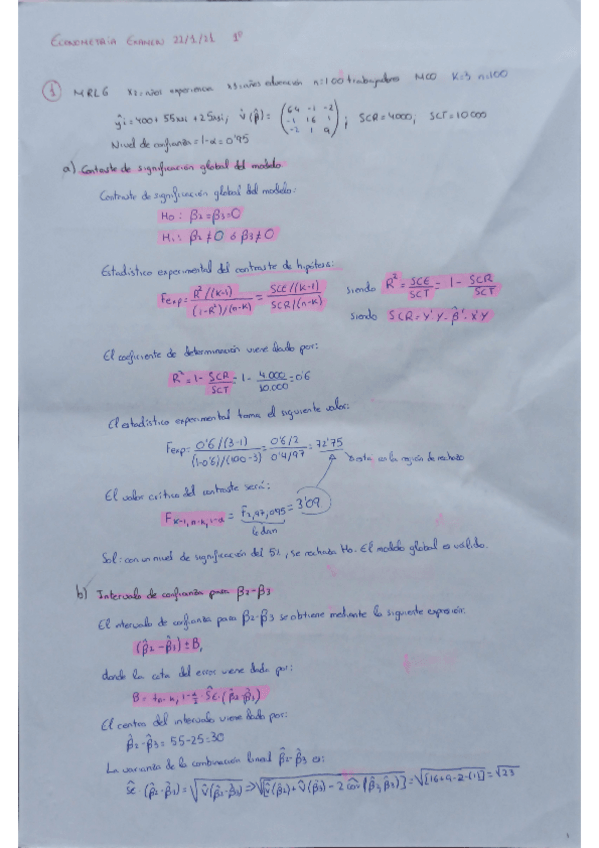 ECONOMETRÍA EXAMEN 22/1/21 1º
① MRLG x2=años experiencia x3=años educación n=100 trabajadores MCO K=3 n=100
ŷi=400+55x2i+25x3i; V̂(β̂)= (64 -1 -2; -1 16 1; -2 1 9); SCR=4000; SCT=10000
Nivel de confianza=1-α=0'95
a) Contraste de significación global del modelo
Contraste de significación global del modelo:
H0: β2=β3=0
H1: β2≠0 ó β3≠0
Estadístico experimental del contraste de hipótesis:
Fexp= R²/(K-1) / (1-R²)/(n-K) = SCE/(K-1) / SCR/(n-K) siendo R²= SCE/SCT = 1- SCR/SCT
siendo SCR=Y'Y-β̂'·X'Y
El coeficiente de determinación viene dado por:
R²=1- SCR/SCT =1- 4.000/10.000 =0'6
El estadístico experimental toma el siguiente valor:
Fexp= 0'6/(3-1) / (1-0'6)/(100-3) = 0'6/2 / 0'4/97 = 72'75 en la región de rechazo
El valor crítico del contraste será:
FK-1,n-K,1-α = F2,97,0'95 = 3'09
lo dan
Sol: con un nivel de significación del 5%, se rechaza H0. El modelo global es válido.
b) Intervalo de confianza para β2-β3
El intervalo de confianza para β2-β3 se obtiene mediante la siguiente expresión:
(β̂2-β̂3)±B,
donde la cota del error viene dada por:
B= tn-K,1-α/2 · Ŝe·(β̂2-β̂3)
El centro del intervalo viene dado por:
β̂2-β̂3=55-25=30
La varianza de la combinación lineal β̂2-β̂3 es:
ŝe·(β̂2-β̂3)=√V̂(β̂2-β̂3) ⇒ √[V̂(β̂2)+V̂(β̂3)-2 côv(β̂2,β̂3)] = √[16+9-2·(1)] = √23